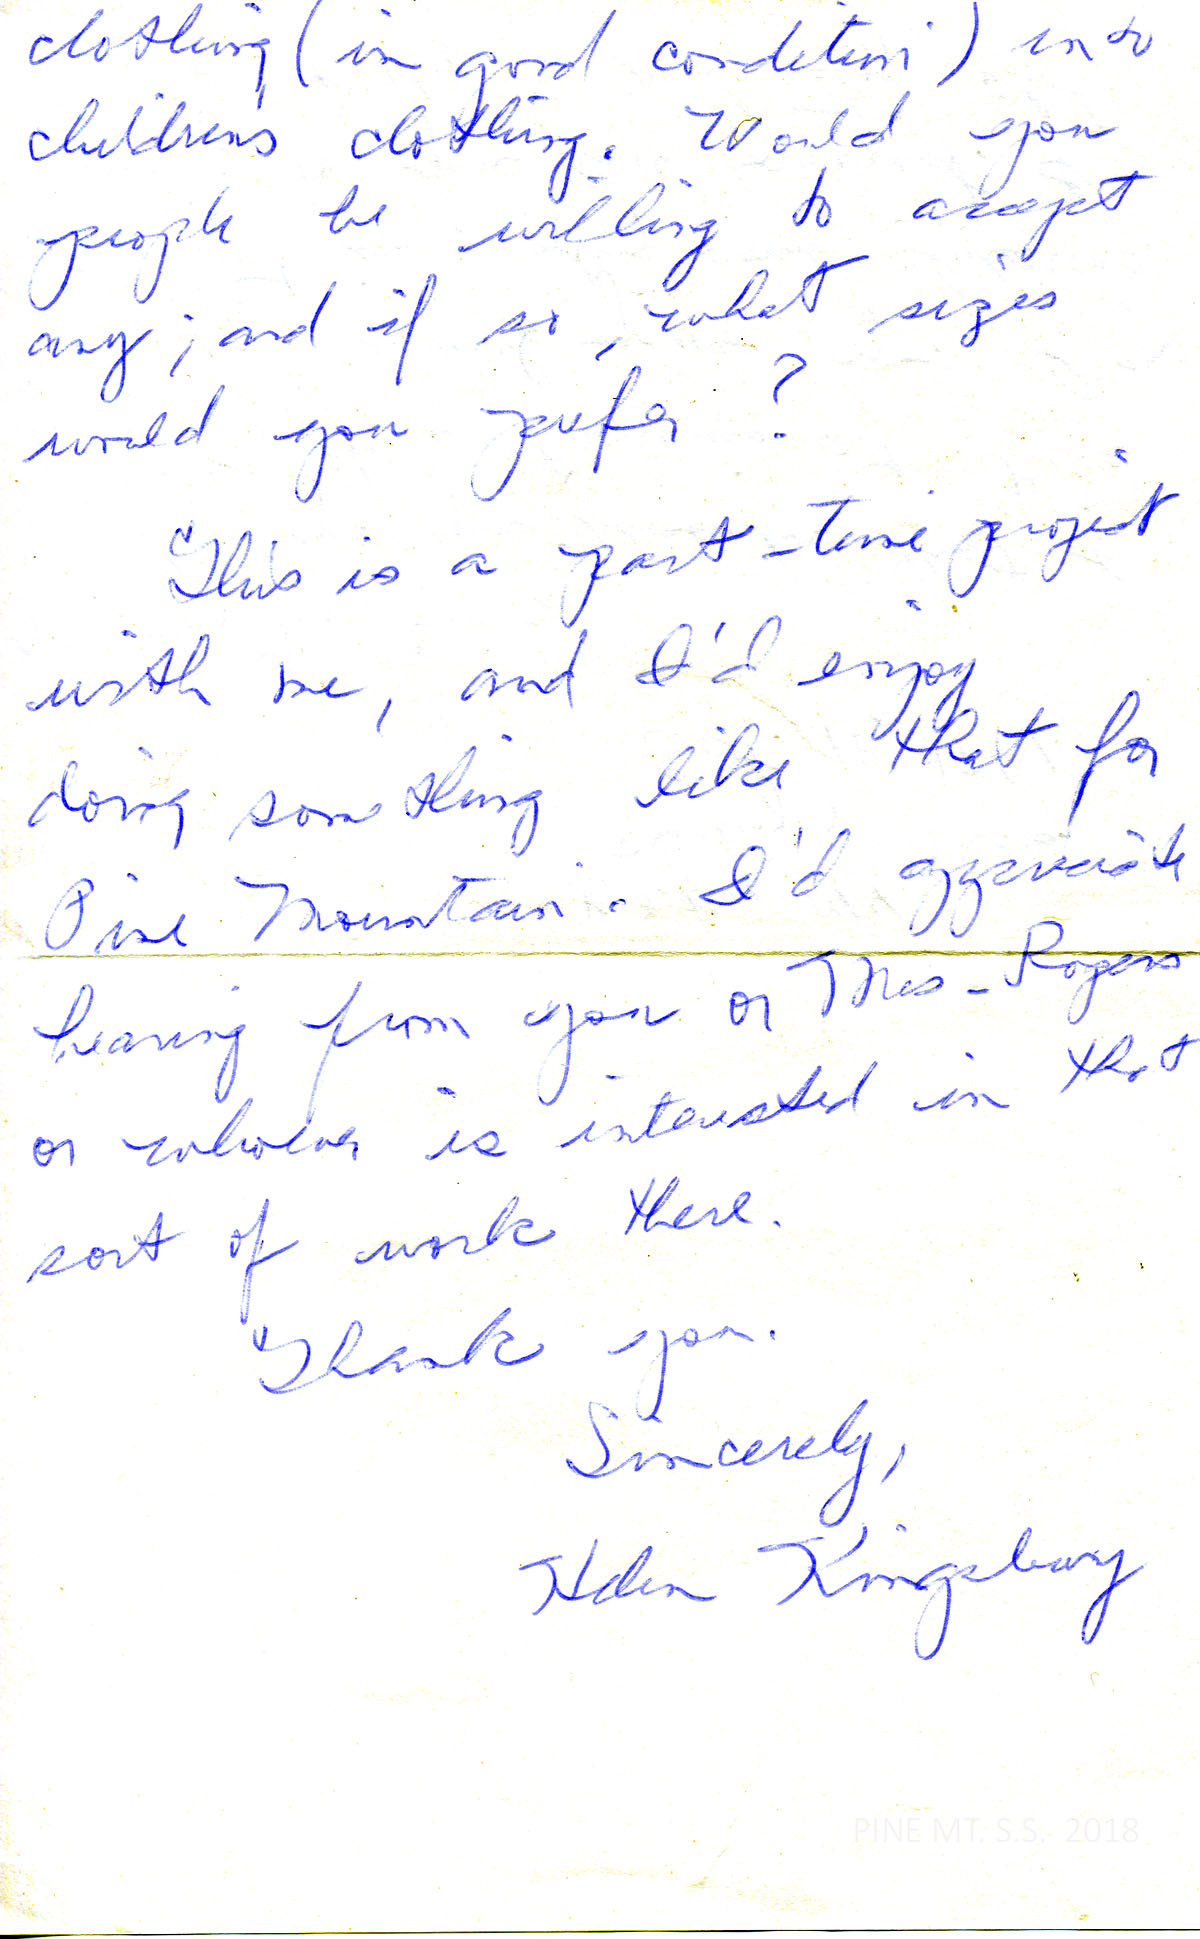 clothing (in good condition) into
children's clothing. Would you
people be willing to accept
any; and if so, what sizes
would you prefer?
This is a part-time project
with me, and I'd enjoy
doing something like that for
Pine Mountain. I'd appreciate
hearing from you or Mrs. Rogers
or whoever is interested in that
sort of work there.
Thank you.
Sincerely,
Helen Kingsbury
PINE MT. S.S. 2018